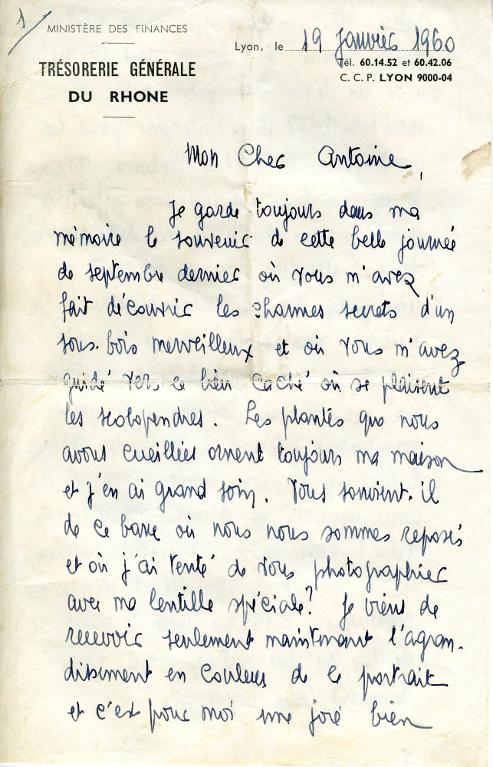 1
MINISTÈRE DES FINANCES
TRÉSORERIE GÉNÉRALE
DU RHONE
Lyon, le 19 janvier 1960
Tél. 60.14.52 et 60.42.06
C. C. P. LYON 9000-04
Mon Cher Antoine,
Je garde toujours dans ma
mémoire le souvenir de cette belle journée
de septembre dernier où vous m'avez
fait découvrir les charmes secrets d'un
sous-bois merveilleux et où vous m'avez
guidé vers ce lieu caché où se plaisent
les scolopendres. Les plantes que nous
avons cueillies ornent toujours ma maison
et j'en ai grand soin. Vous souvient-il
de ce banc où nous nous sommes reposés
et où j'ai tenté de vous photographier
avec ma lentille spéciale? Je viens de
recevoir seulement maintenant l'agran-
dissement en couleurs de ce portrait
et c'est pour moi une joie bien